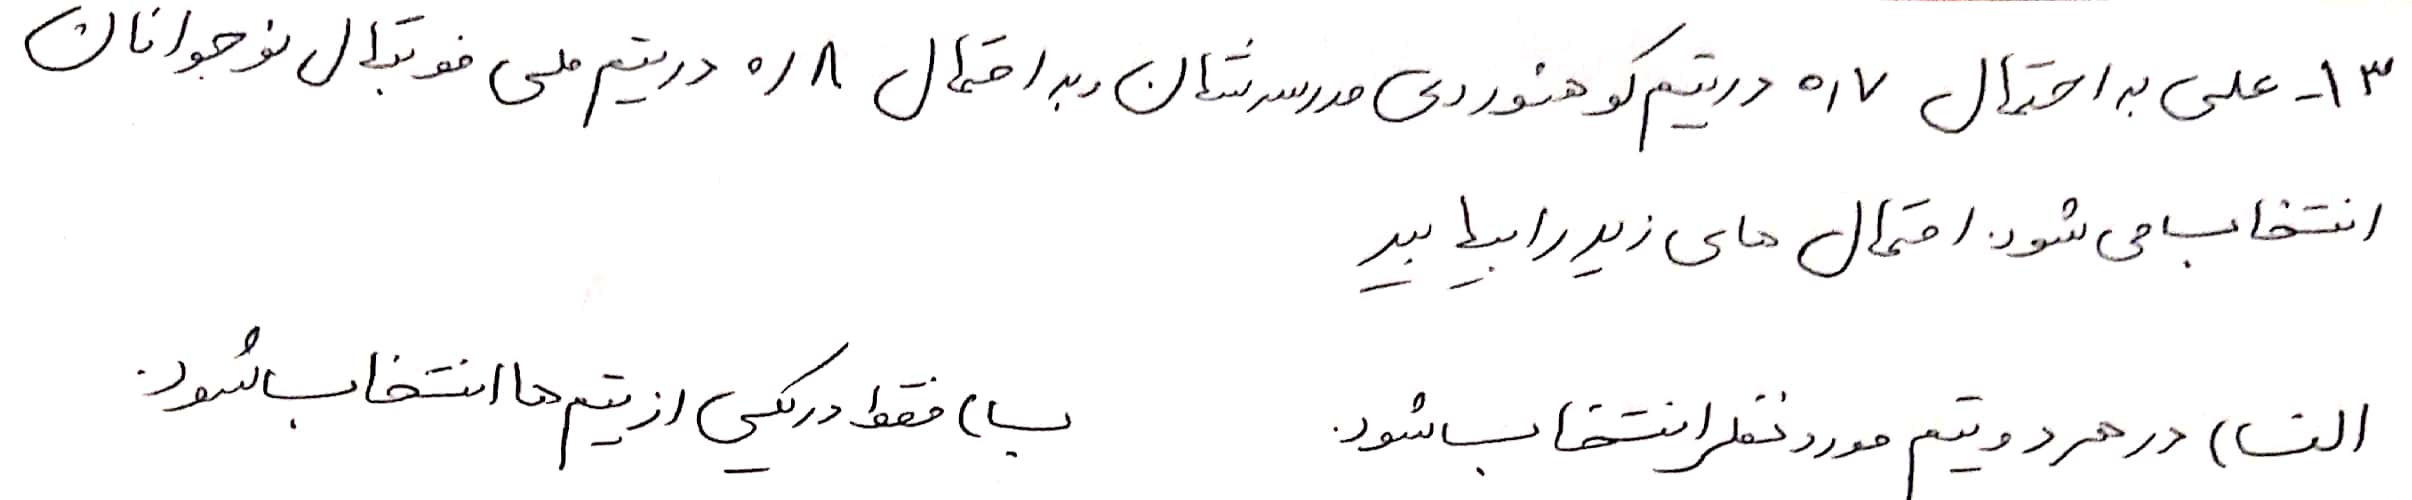 ۱۳- علی به احتمال ۰/۷ در تیم کوهنوردی مدرسه‌شان و به احتمال ۰/۸ در تیم ملی فوتبال نوجوانان
انتخاب می شود. احتمال های زیر را بیابید
الف) در هر دو تیم مورد نظر انتخاب شود.
ب) فقط در یکی از تیم ها انتخاب شود.